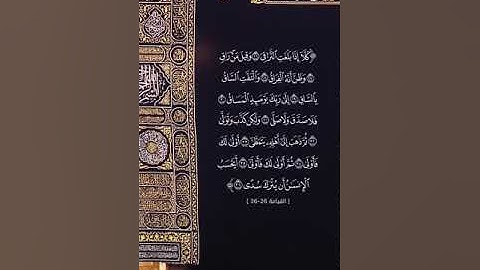 ﴿كَلَّا إِذَا بَلَغَتِ التَّرَاقِيَ ۝ وَقِيلَ مَنْ رَاقٍ
۝ وَظَنَّ أَنَّهُ الْفِرَاقُ ۝ وَالْتَفَّتِ السَّاقُ
بِالسَّاقِ ۝ إِلَىٰ رَبِّكَ يَوْمَئِذٍ الْمَسَاقُ ۝
فَلَا صَدَّقَ وَلَا صَلَّىٰ ۝ وَلَٰكِن كَذَّبَ وَتَوَلَّىٰ
۝ ثُمَّ ذَهَبَ إِلَىٰ أَهْلِهِ يَتَمَطَّىٰ ۝ أَوْلَىٰ لَكَ
فَأَوْلَىٰ ۝ ثُمَّ أَوْلَىٰ لَكَ فَأَوْلَىٰ ۝ أَيَحْسَبُ
الْإِنسَانُ أَن يُتْرَكَ سُدًى ۝﴾
[ القيامة 26-36 ]